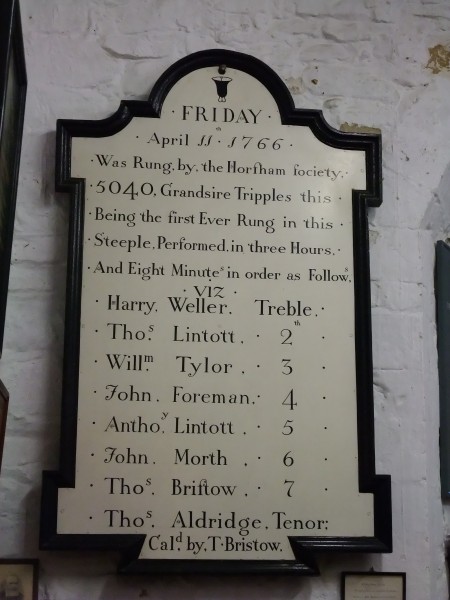 · FRIDAY ·
· April 11th · 1766 ·
· Was Rung, by, the Horſham ſociety, ·
· 5040, Grandsire Tripples this ·
· Being the first Ever Rung in this ·
· Steeple, Performed, in three Hours, ·
· And Eight Minutes in order as Follows,
· VIZ ·
· Harry. Weller. Treble. ·
· Thos. Lintott. · 2th ·
· Willm. Tylor. · 3 ·
· John. Foreman. · 4 ·
· Anthoy. Lintott. · 5 ·
· John. Morth. · 6 ·
· Thos. Briſtow. · 7 ·
· Thos. Aldridge, Tenor:
Cald. by, T·Bristow.